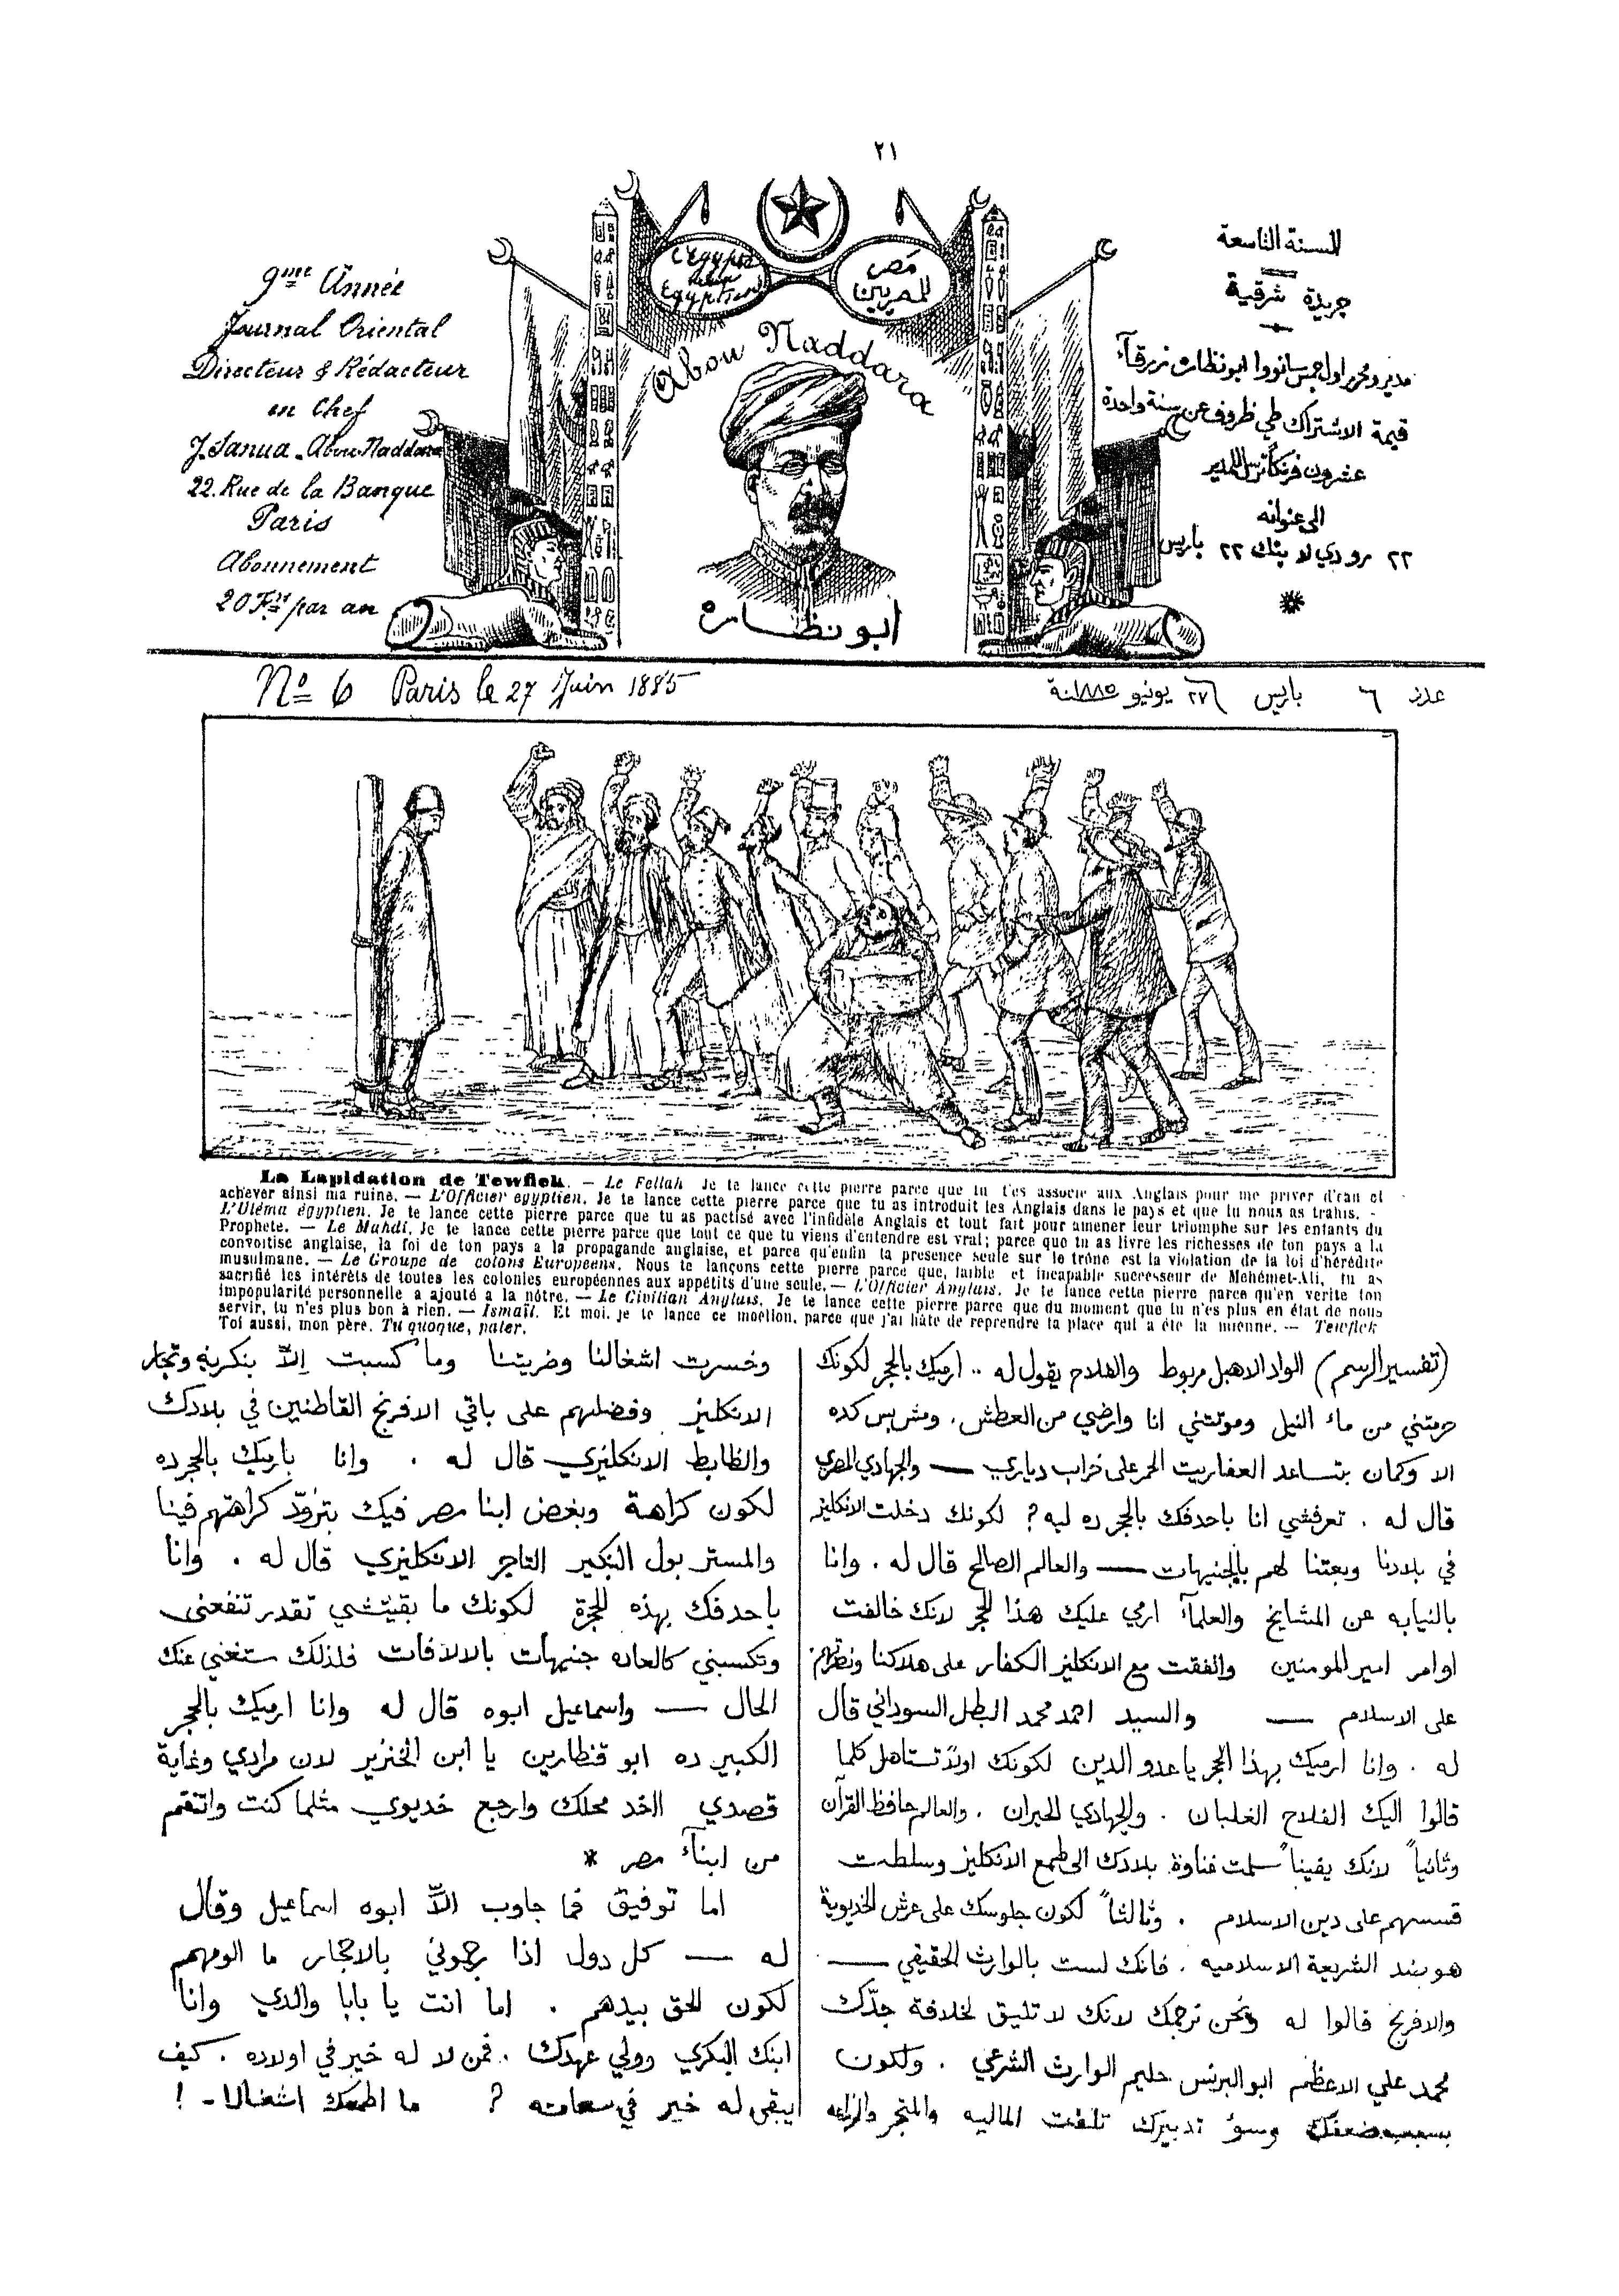 ٢١
9me Année
Journal Oriental
Directeur & Rédacteur
en Chef
J. Sanua. Abou Naddara
22. Rue de la Banque
Paris
Abonnement
20 Frs par an
L'Egypte
aux
Egyptiens
مصر
للمصريين
Abou Naddara
ابو نظاره
السنة التاسعة
جريدة شرقية
مدير ومحرر اول جمس سانووا ابو نظاره زرقآء
قيمة الاشتراك طي ظروف عن سنة واحدة
عشرون فرنكاً ترسل للمدير
الى عنوانه
٢٢ رو دي لا بنك ٢٢ باريس
No 6 Paris le 27 Juin 1885
عدد ٦ باريس ٢٧ يونيو سنة ١٨٨٥
La Lapidation de Tewfick. — Le Fellah Je te lance cette pierre parce que tu t'es associé aux Anglais pour me priver d'eau et
achever ainsi ma ruine. — L'Officier égyptien. Je te lance cette pierre parce que tu as introduit les Anglais dans le pays et que tu nous as trahis. -
L'Uléma égyptien. Je te lance cette pierre parce que tu as pactisé avec l'infidèle Anglais et tout fait pour amener leur triomphe sur les enfants du
Prophete. — Le Mahdi. Je te lance cette pierre parce que tout ce que tu viens d'entendre est vrai; parce que tu as livré les richesses de ton pays a la
convoitise anglaise, la foi de ton pays a la propagande anglaise, et parce qu'enfin ta presence seule sur le trône est la violation de la loi d'hérédité
musulmane. — Le Groupe de colons Européens. Nous te lançons cette pierre parce que, faible et incapable successeur de Mehémet-Ali, tu as
sacrifié les intérêts de toutes les colonies européennes aux appétits d'une seule. — L'Officier Anglais. Je te lance cette pierre parce qu'en verite ton
impopularité personnelle a ajouté a la nôtre. — Le Civilian Anglais. Je te lance cette pierre parce que du moment que tu n'es plus en état de nous
servir, tu n'es plus bon à rien. — Ismaïl. Et moi, je te lance ce moellon, parce que j'ai hâte de reprendre ta place qui a été la mienne. — Tewfick
Toi aussi, mon père. Tu quoque, pater.
(تفسير الرسم) الواد الاهبل مربوط والفلاح يقول له .. ارميك بالحجر لكونك
حرمتني من ماء النيل وموتتني انا وارضي من العطش. ومش بس كده
الا وكمان بتساعد العفاريت الحمر على خراب دياري — والجهادي المصري
قال له . تعرفشي انا باحدفك بالحجر ده ليه ? لكونك دخلت الانكليز
في بلادنا وبعتنا لهم بالجنيهات — والعالم الصالح قال له . وانا
بالنيابه عن المشايخ والعلمآء ارمي عليك هذا الحجر لانك خالفت
اوامر امير المومنين واتفقت مع الانكليز الكفار على هلاكنا ونصرتهم
على الاسلام — والسيد احمد محمد البطل السوداني قال
له . وانا ارميك بهذا الحجر يا عدو الدين لكونك اولاً تستاهل كلما
قالوا اليك الفلاح الغلبان . والجهادي الحيران . والعالم حافظ القرآن
وثانياً لانك يقيناً سلمت غناوة بلادك الى طمع الانكليز وسلطت
قسسهم على دين الاسلام . وثالثاً لكون جلوسك على عرش الخديوية
هو ضد الشريعة الاسلاميه . فانك لست بالوارث الحقيقي —
والافرنج قالوا له ونحن نرجمك لانك لا تليق لخلافة جدّك
محمد علي الاعظم ابو البرنس حليم الوارث الشرعي . ولكون
بسبب ضعفك وسؤ تدبيرك تلفت الماليه والمتجر والزراعه
وخسرت اشغالنا وضريتنا وما كسبت إلاّ بنكرية وتجار
الانكليز وفضلتهم على باقي الافرنج القاطنين في بلادك
والظابط الانكليزي قال له . وانا بارميك بالحجر ده
لكون كراهة وبغض ابنا مصر فيك بتزوّد كراهتهم فينا
والمستر بول البكير التاجر الانكليزي قال له . وانا
باحدفك بهذه الحجرة لكونك ما بقيتشي تقدر تنفعني
وتكسبني كالعاده جنيهات بالالافات فلذلك ستغني عنك
الحال — واسماعيل ابوه قال له وانا ارميك بالحجر
الكبير ده ابو قنطارين يا ابن الخنزير لان مرادي وغاية
قصدي اخد محلك وارجع خديوي مثلما كنت واتنقم
من ابنآء مصر *
اما توفيق فما جاوب الاّ ابوه اسماعيل وقال
له — كل دول اذا رجموني بالاحجار ما الومهم
لكون الحق بيدهم . اما انت يا بابا والدي وانا
ابنك البكري وولي عهدك . فمن لا له خير في اولاده . كيف
يبقى له خير في ? ما اطمعك !